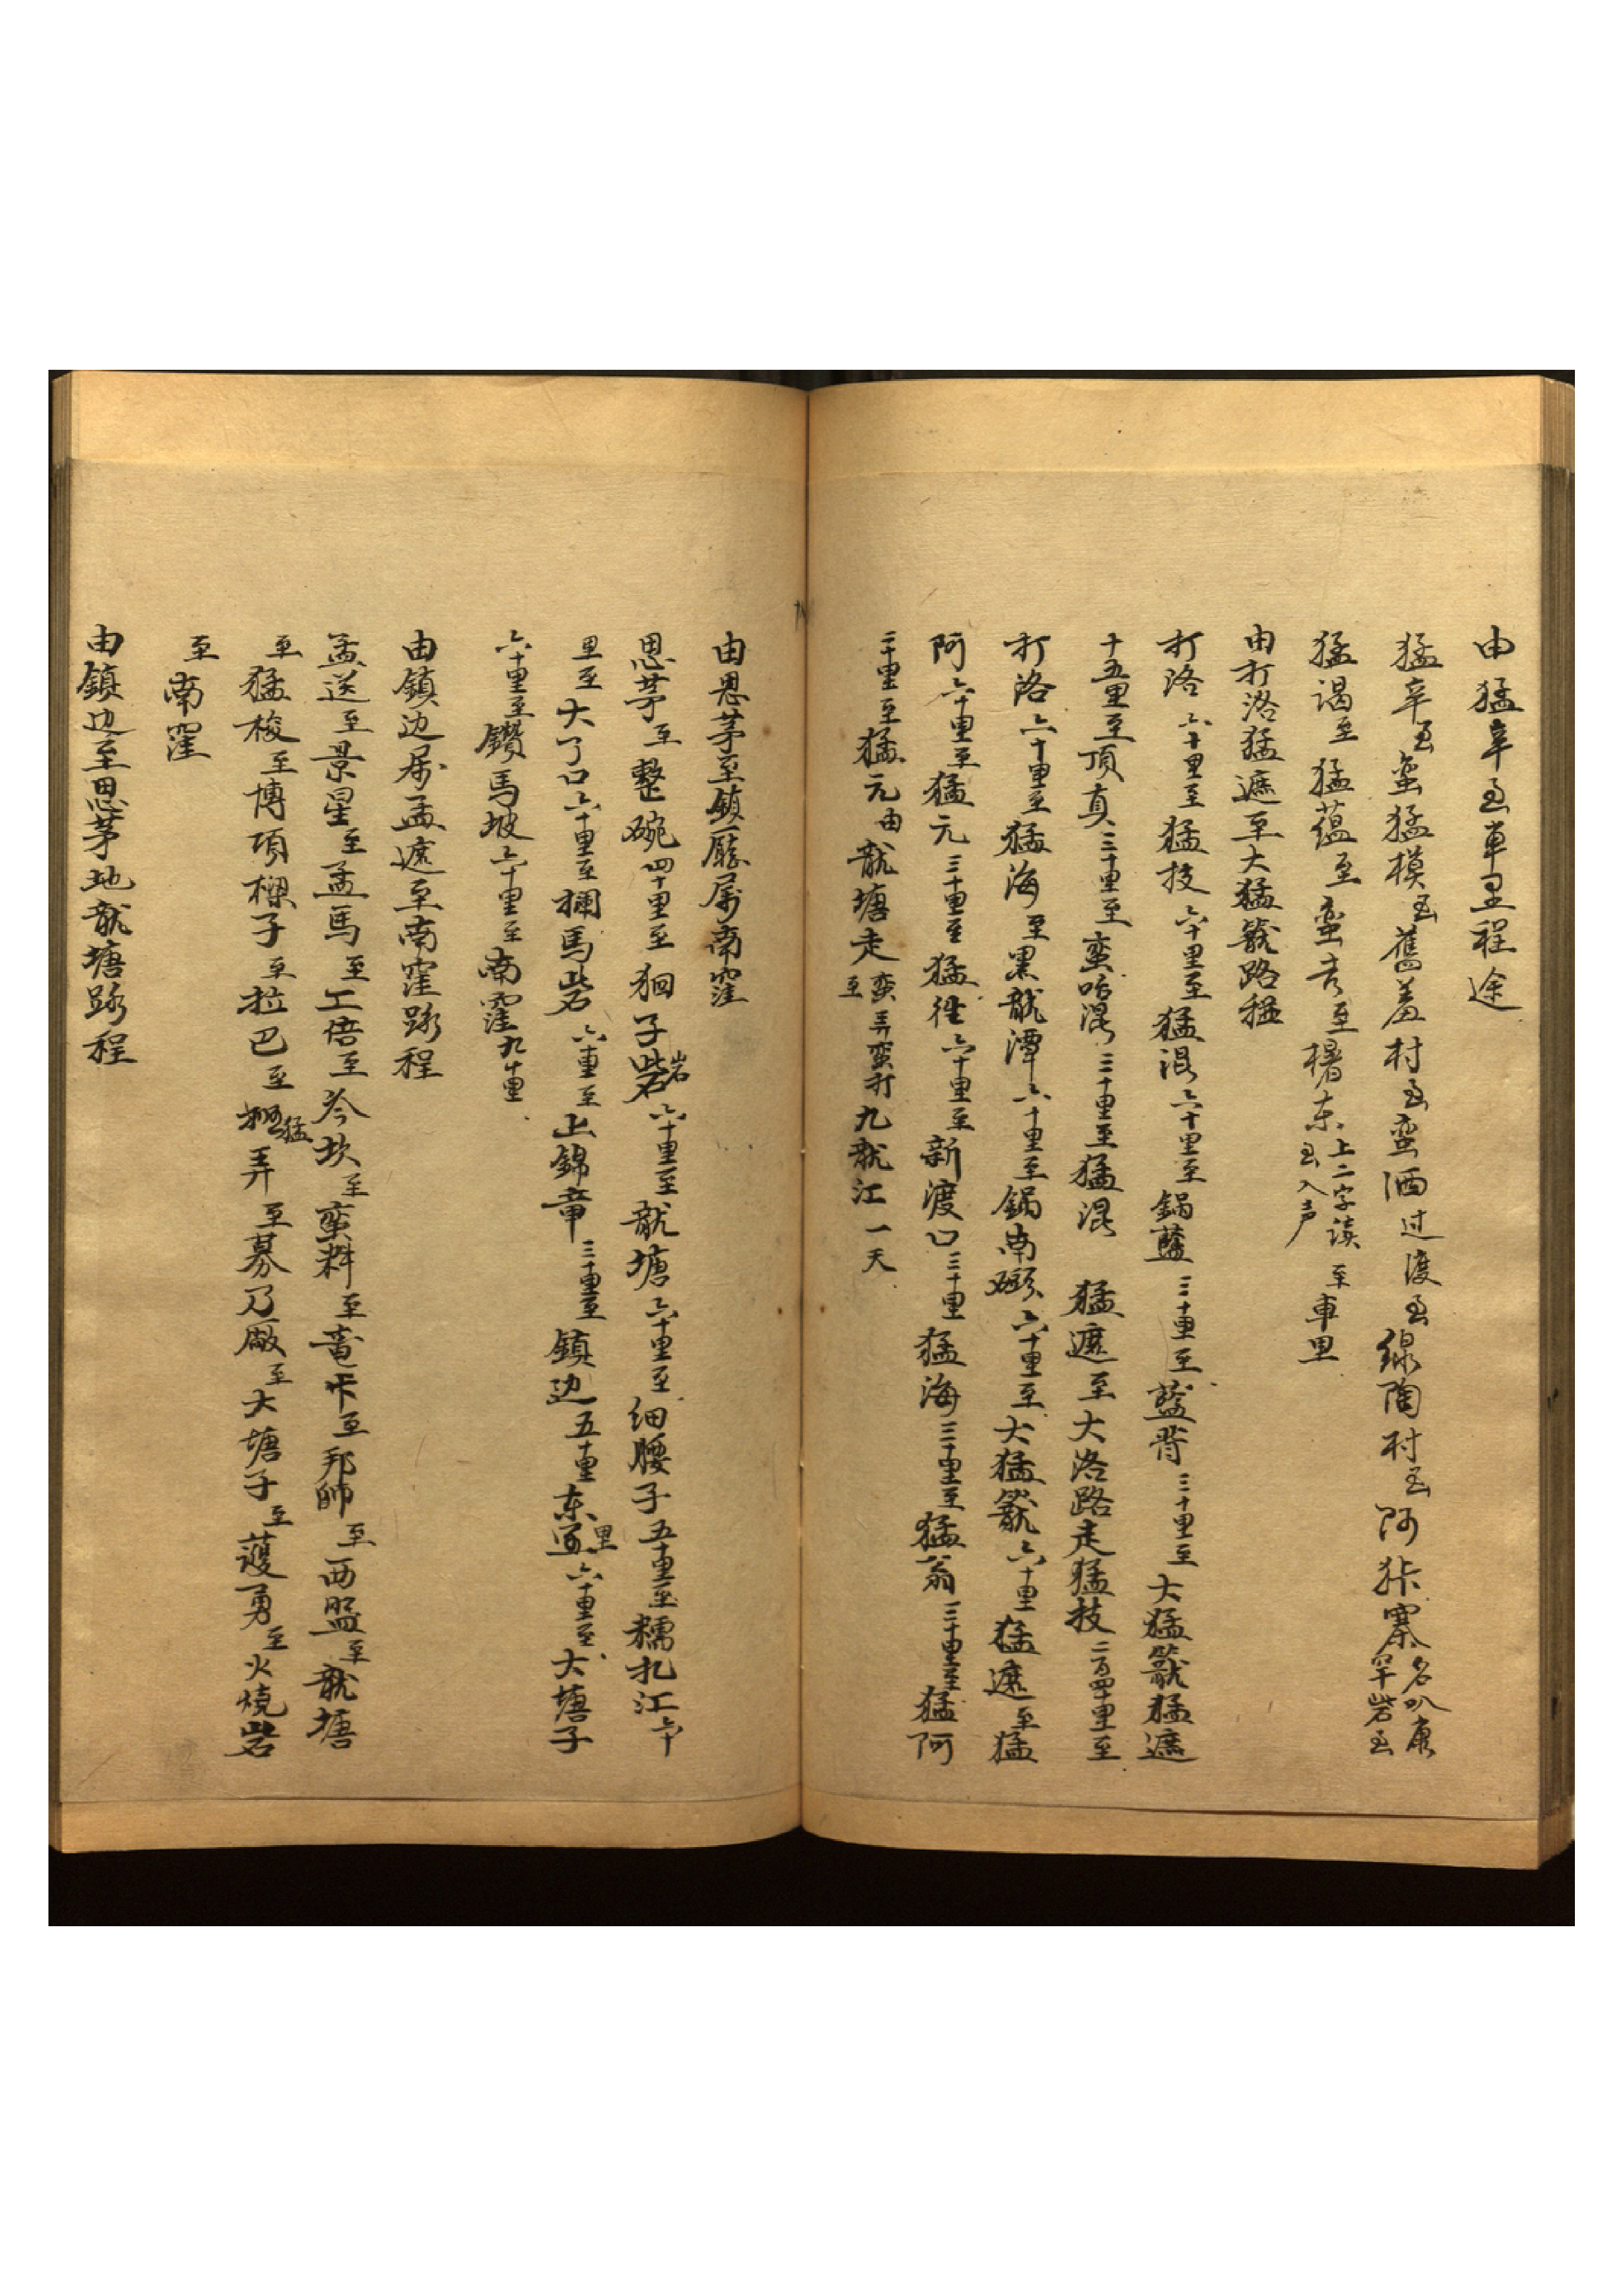 由猛辛至車里程途
猛辛至蛮猛模至舊羞村至蛮洒过渡至線陶村至阿狜寨名叭康罕岩至
猛謁至猛蕴至蛮吉至樌东上二字读入声至車里
由打洛猛遮至大猛籠路程
打洛六十里至猛技六十里至猛混六十里至鍋藍三十里至藍背三十里至大猛籠猛遮
十五里至頂真三十里至蛮哈混三十里至猛混 猛遮至大洛路走猛技二百四十里至
打洛六十里至猛海至黑龍潭六十里至鍋南六十里至大猛籠六十里猛遮至猛
阿六十里至猛元三十里至猛往六十里至新渡口三十里猛海三十里至猛翁三十里至猛阿
二十里至猛元由龍塘走蛮弄蛮打至九龍江一天
由思茅至鎮廳属南窪
思茅至整碗四十里至狪子岩六十里至龍塘六十里至细腰子五十里至糯扎江六十
里至大了口六十里至攔馬岩六十里至上錦章三十里至鎮边五十里东里六十里至大塘子
六十里至鑽馬坡六十里至南窪九十里
由鎮边属孟遮至南窪路程
孟送至景星至孟馬至工倍至今坎至蛮料至竜卡至邦帥至西盟至龍塘
至猛梭至博項樑子至拉巴至猛弄至募乃廠至大塘子至蒦勇至火燒岩
至南窪
由鎮边至思茅地龍塘路程